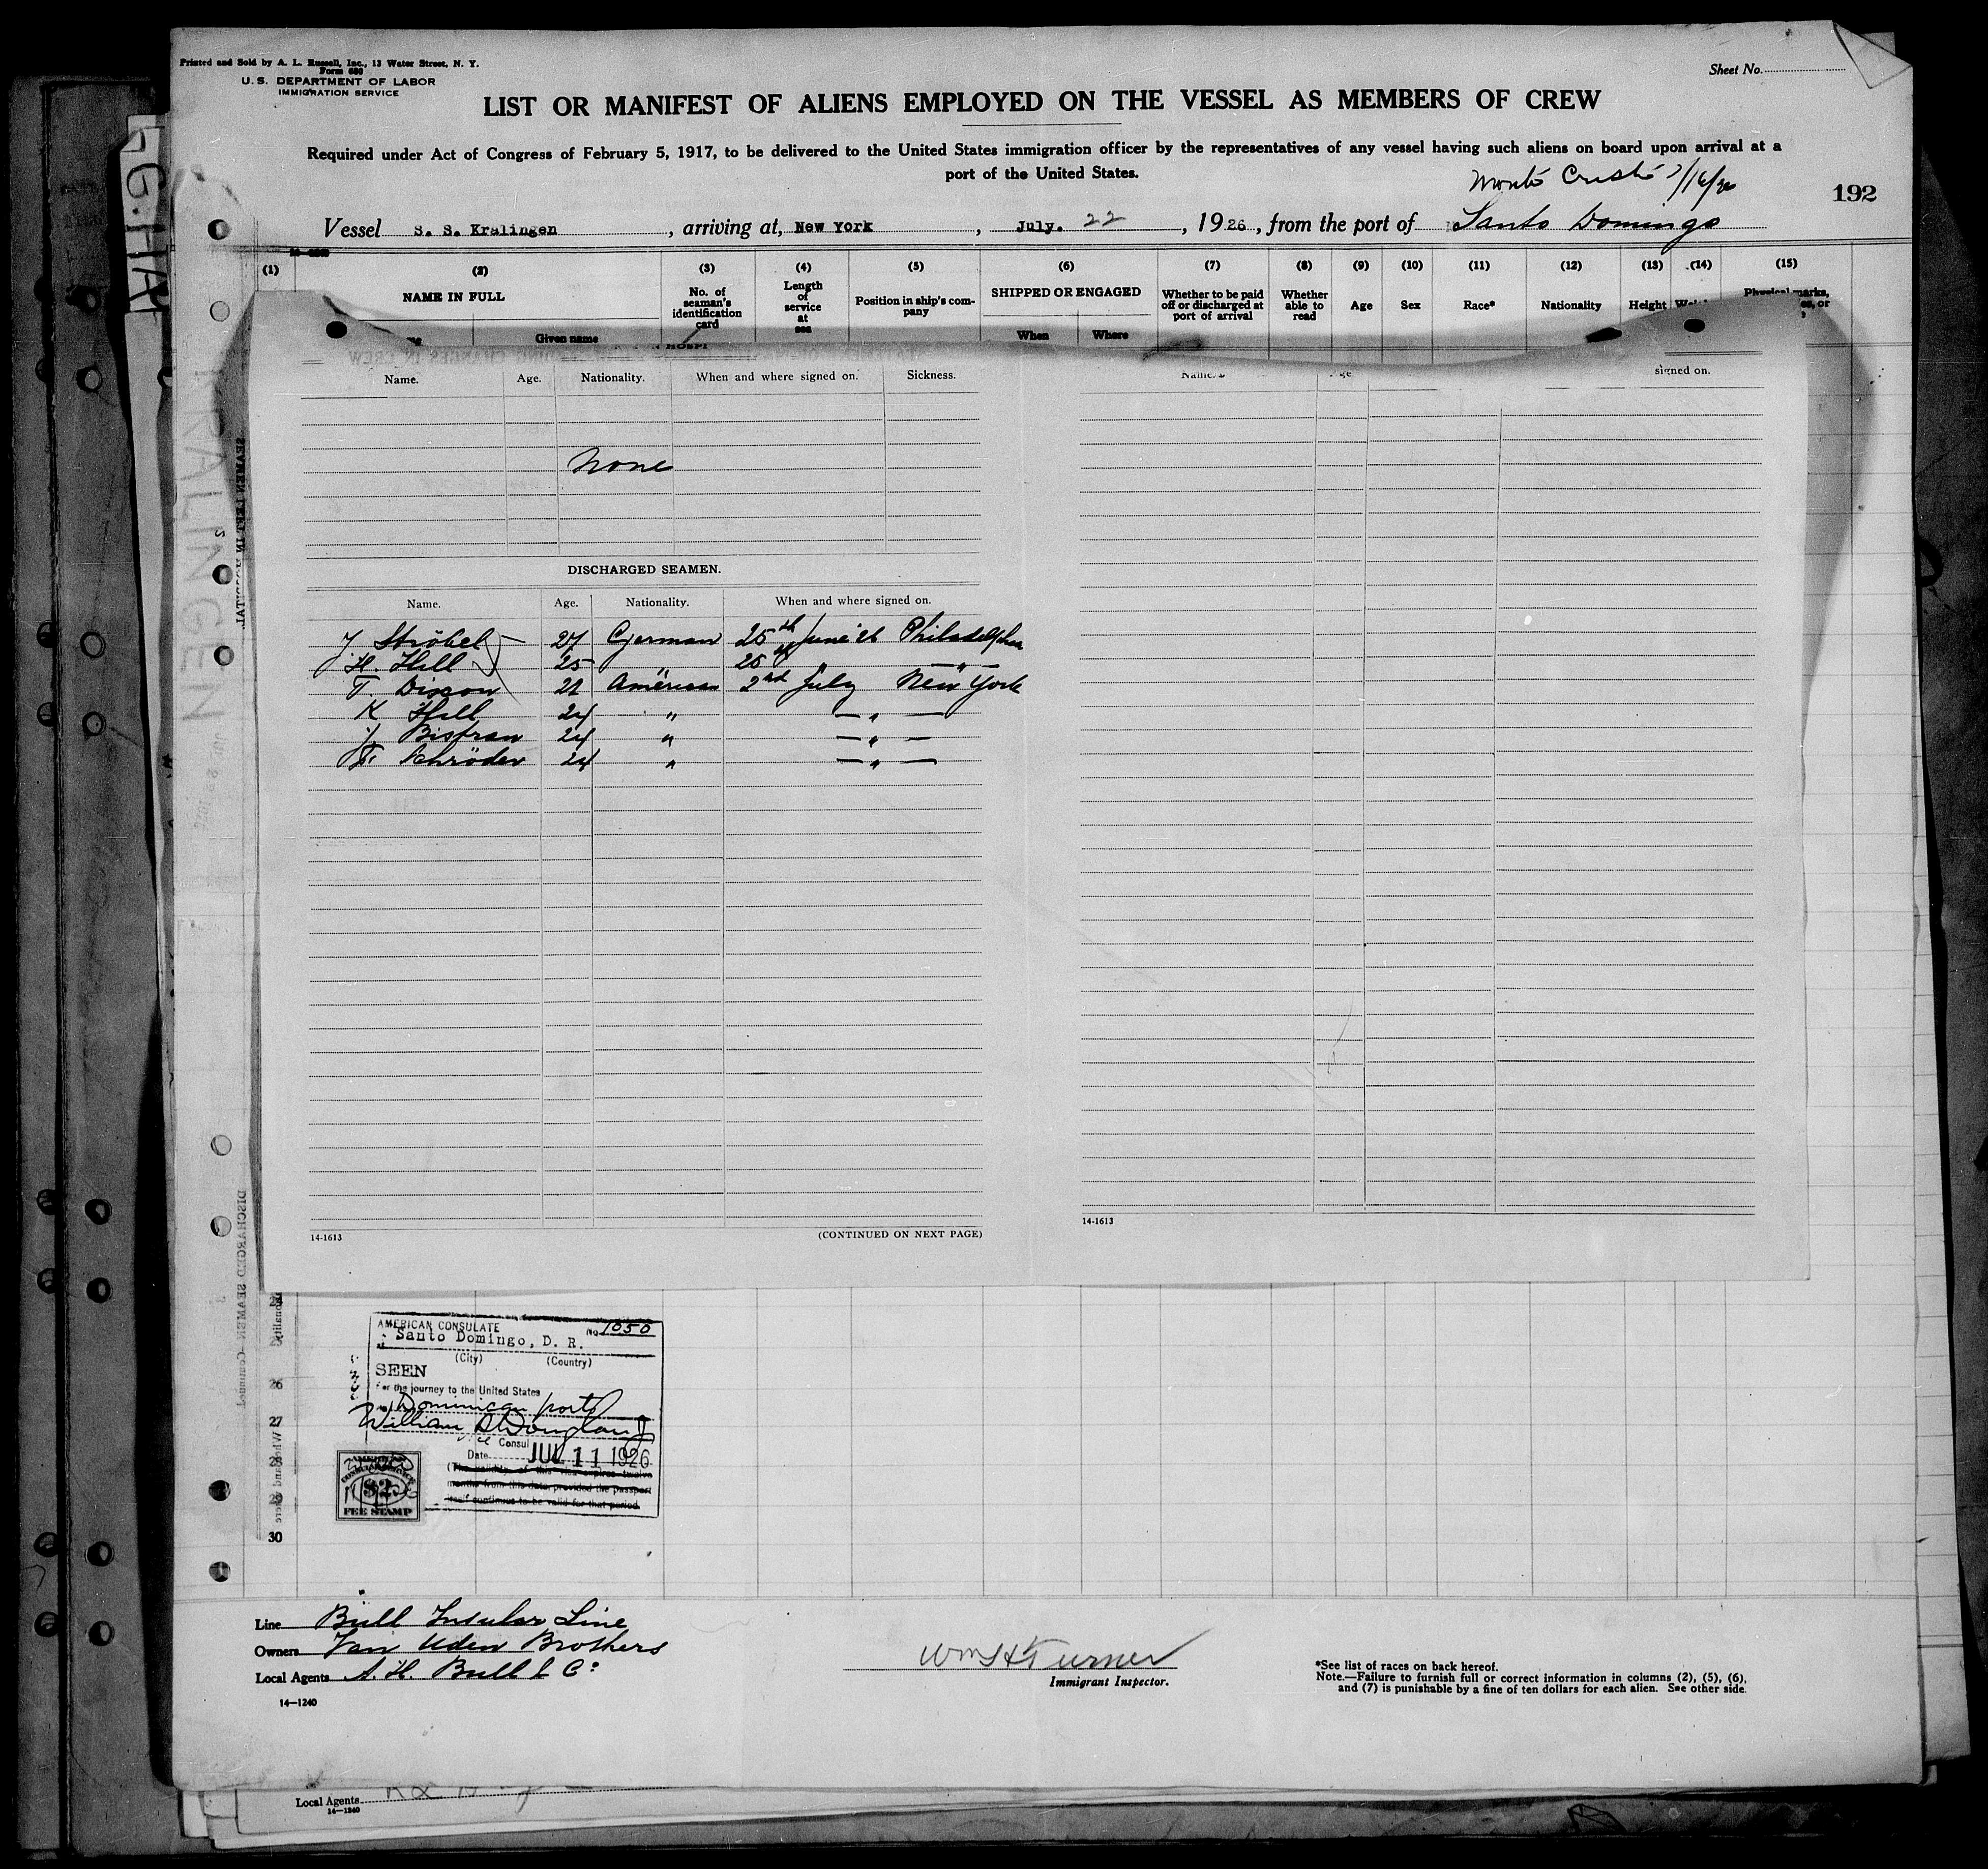 Printed and Sold by A. L. Russell, Inc., 13 Water Street, N. Y.
Form 680
U. S. DEPARTMENT OF LABOR
IMMIGRATION SERVICE
Sheet No.
LIST OR MANIFEST OF ALIENS EMPLOYED ON THE VESSEL AS MEMBERS OF CREW
Required under Act of Congress of February 5, 1917, to be delivered to the United States immigration officer by the representatives of any vessel having such aliens on board upon arrival at a
port of the United States.
Monte Cristi 7/16/26
192
Vessel S. S. Kralingen, arriving at, New York, July. 22, 1926, from the port of Santo Domingo
(1) (2) (3) (4) (5) (6) (7) (8) (9) (10) (11) (12) (13) (14) (15)
NAME IN FULL
Given name
No. of seaman's identification card
Length of service at sea
Position in ship's company
SHIPPED OR ENGAGED
When Where
Whether to be paid off or discharged at port of arrival
Whether able to read
Age
Sex
Race*
Nationality
Height
Physical marks,
Name. Age. Nationality. When and where signed on. Sickness.
signed on.
None
DISCHARGED SEAMEN.
Name. Age. Nationality. When and where signed on.
J. Ströbel 27 German 25th June '26 Philadelphia
H. Hill 25 " 25th " — " —
T. Dixon 21 American 2nd July New York
K Hill 24 " — " —
J. Bistran 24 " — " —
F. Schröder 24 " — " —
14-1613
(CONTINUED ON NEXT PAGE)
14-1613
KRALINGEN
SEAMEN LEFT IN HOSPITAL
DISCHARGED SEAMEN—Continued
AMERICAN CONSULATE
No 1050
at Santo Domingo, D. R.
(City) (Country)
SEEN
For the journey to the United States
Dominican ports
Consul
Date JUL 11 1926
(The validity of this visa expires twelve
months from this date provided the passport
itself continues to be valid for that period.
AMERICAN
CONSULAR SERVICE
$2
FEE STAMP
26
27
28
29
30
Line Bull Insular Line
Owners Van Uden Brothers
Local Agents A. H. Bull & Co
14—1240
Wm H Turner
Immigrant Inspector.
*See list of races on back hereof.
Note.—Failure to furnish full or correct information in columns (2), (5), (6),
and (7) is punishable by a fine of ten dollars for each alien. See other side.
Local Agents
14—1240